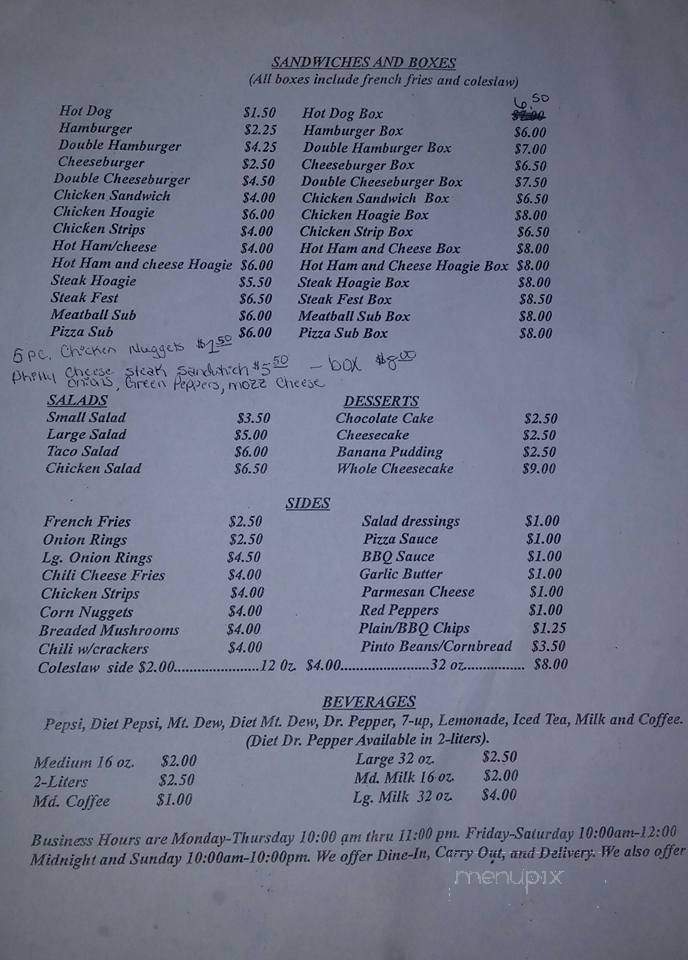 SANDWICHES AND BOXES
(All boxes include french fries and coleslaw)
6.50
Hot Dog $1.50 Hot Dog Box
Hamburger $2.25 Hamburger Box $6.00
Double Hamburger $4.25 Double Hamburger Box $7.00
Cheeseburger $2.50 Cheeseburger Box $6.50
Double Cheeseburger $4.50 Double Cheeseburger Box $7.50
Chicken Sandwich $4.00 Chicken Sandwich Box $6.50
Chicken Hoagie $6.00 Chicken Hoagie Box $8.00
Chicken Strips $4.00 Chicken Strip Box $6.50
Hot Ham/cheese $4.00 Hot Ham and Cheese Box $8.00
Hot Ham and cheese Hoagie $6.00 Hot Ham and Cheese Hoagie Box $8.00
Steak Hoagie $5.50 Steak Hoagie Box $8.00
Steak Fest $6.50 Steak Fest Box $8.50
Meatball Sub $6.00 Meatball Sub Box $8.00
Pizza Sub $6.00 Pizza Sub Box $8.00
5 pc. Chicken Nuggets $1.50
Philly Cheese steak Sandwhich $5.50 - box $8.00
onions, Green Peppers, mozz Cheese
SALADS DESSERTS
Small Salad $3.50 Chocolate Cake $2.50
Large Salad $5.00 Cheesecake $2.50
Taco Salad $6.00 Banana Pudding $2.50
Chicken Salad $6.50 Whole Cheesecake $9.00
SIDES
French Fries $2.50 Salad dressings $1.00
Onion Rings $2.50 Pizza Sauce $1.00
Lg. Onion Rings $4.50 BBQ Sauce $1.00
Chili Cheese Fries $4.00 Garlic Butter $1.00
Chicken Strips $4.00 Parmesan Cheese $1.00
Corn Nuggets $4.00 Red Peppers $1.00
Breaded Mushrooms $4.00 Plain/BBQ Chips $1.25
Chili w/crackers $4.00 Pinto Beans/Cornbread $3.50
Coleslaw side $2.00......................12 Oz. $4.00.......................32 oz................ $8.00
BEVERAGES
Pepsi, Diet Pepsi, Mt. Dew, Diet Mt. Dew, Dr. Pepper, 7-up, Lemonade, Iced Tea, Milk and Coffee.
(Diet Dr. Pepper Available in 2-liters).
Medium 16 oz. $2.00 Large 32 oz. $2.50
2-Liters $2.50 Md. Milk 16 oz. $2.00
Md. Coffee $1.00 Lg. Milk 32 oz. $4.00
Business Hours are Monday-Thursday 10:00 am thru 11:00 pm. Friday-Saturday 10:00am-12:00
Midnight and Sunday 10:00am-10:00pm. We offer Dine-In, Carry Out, and Delivery. We also offer
menupix